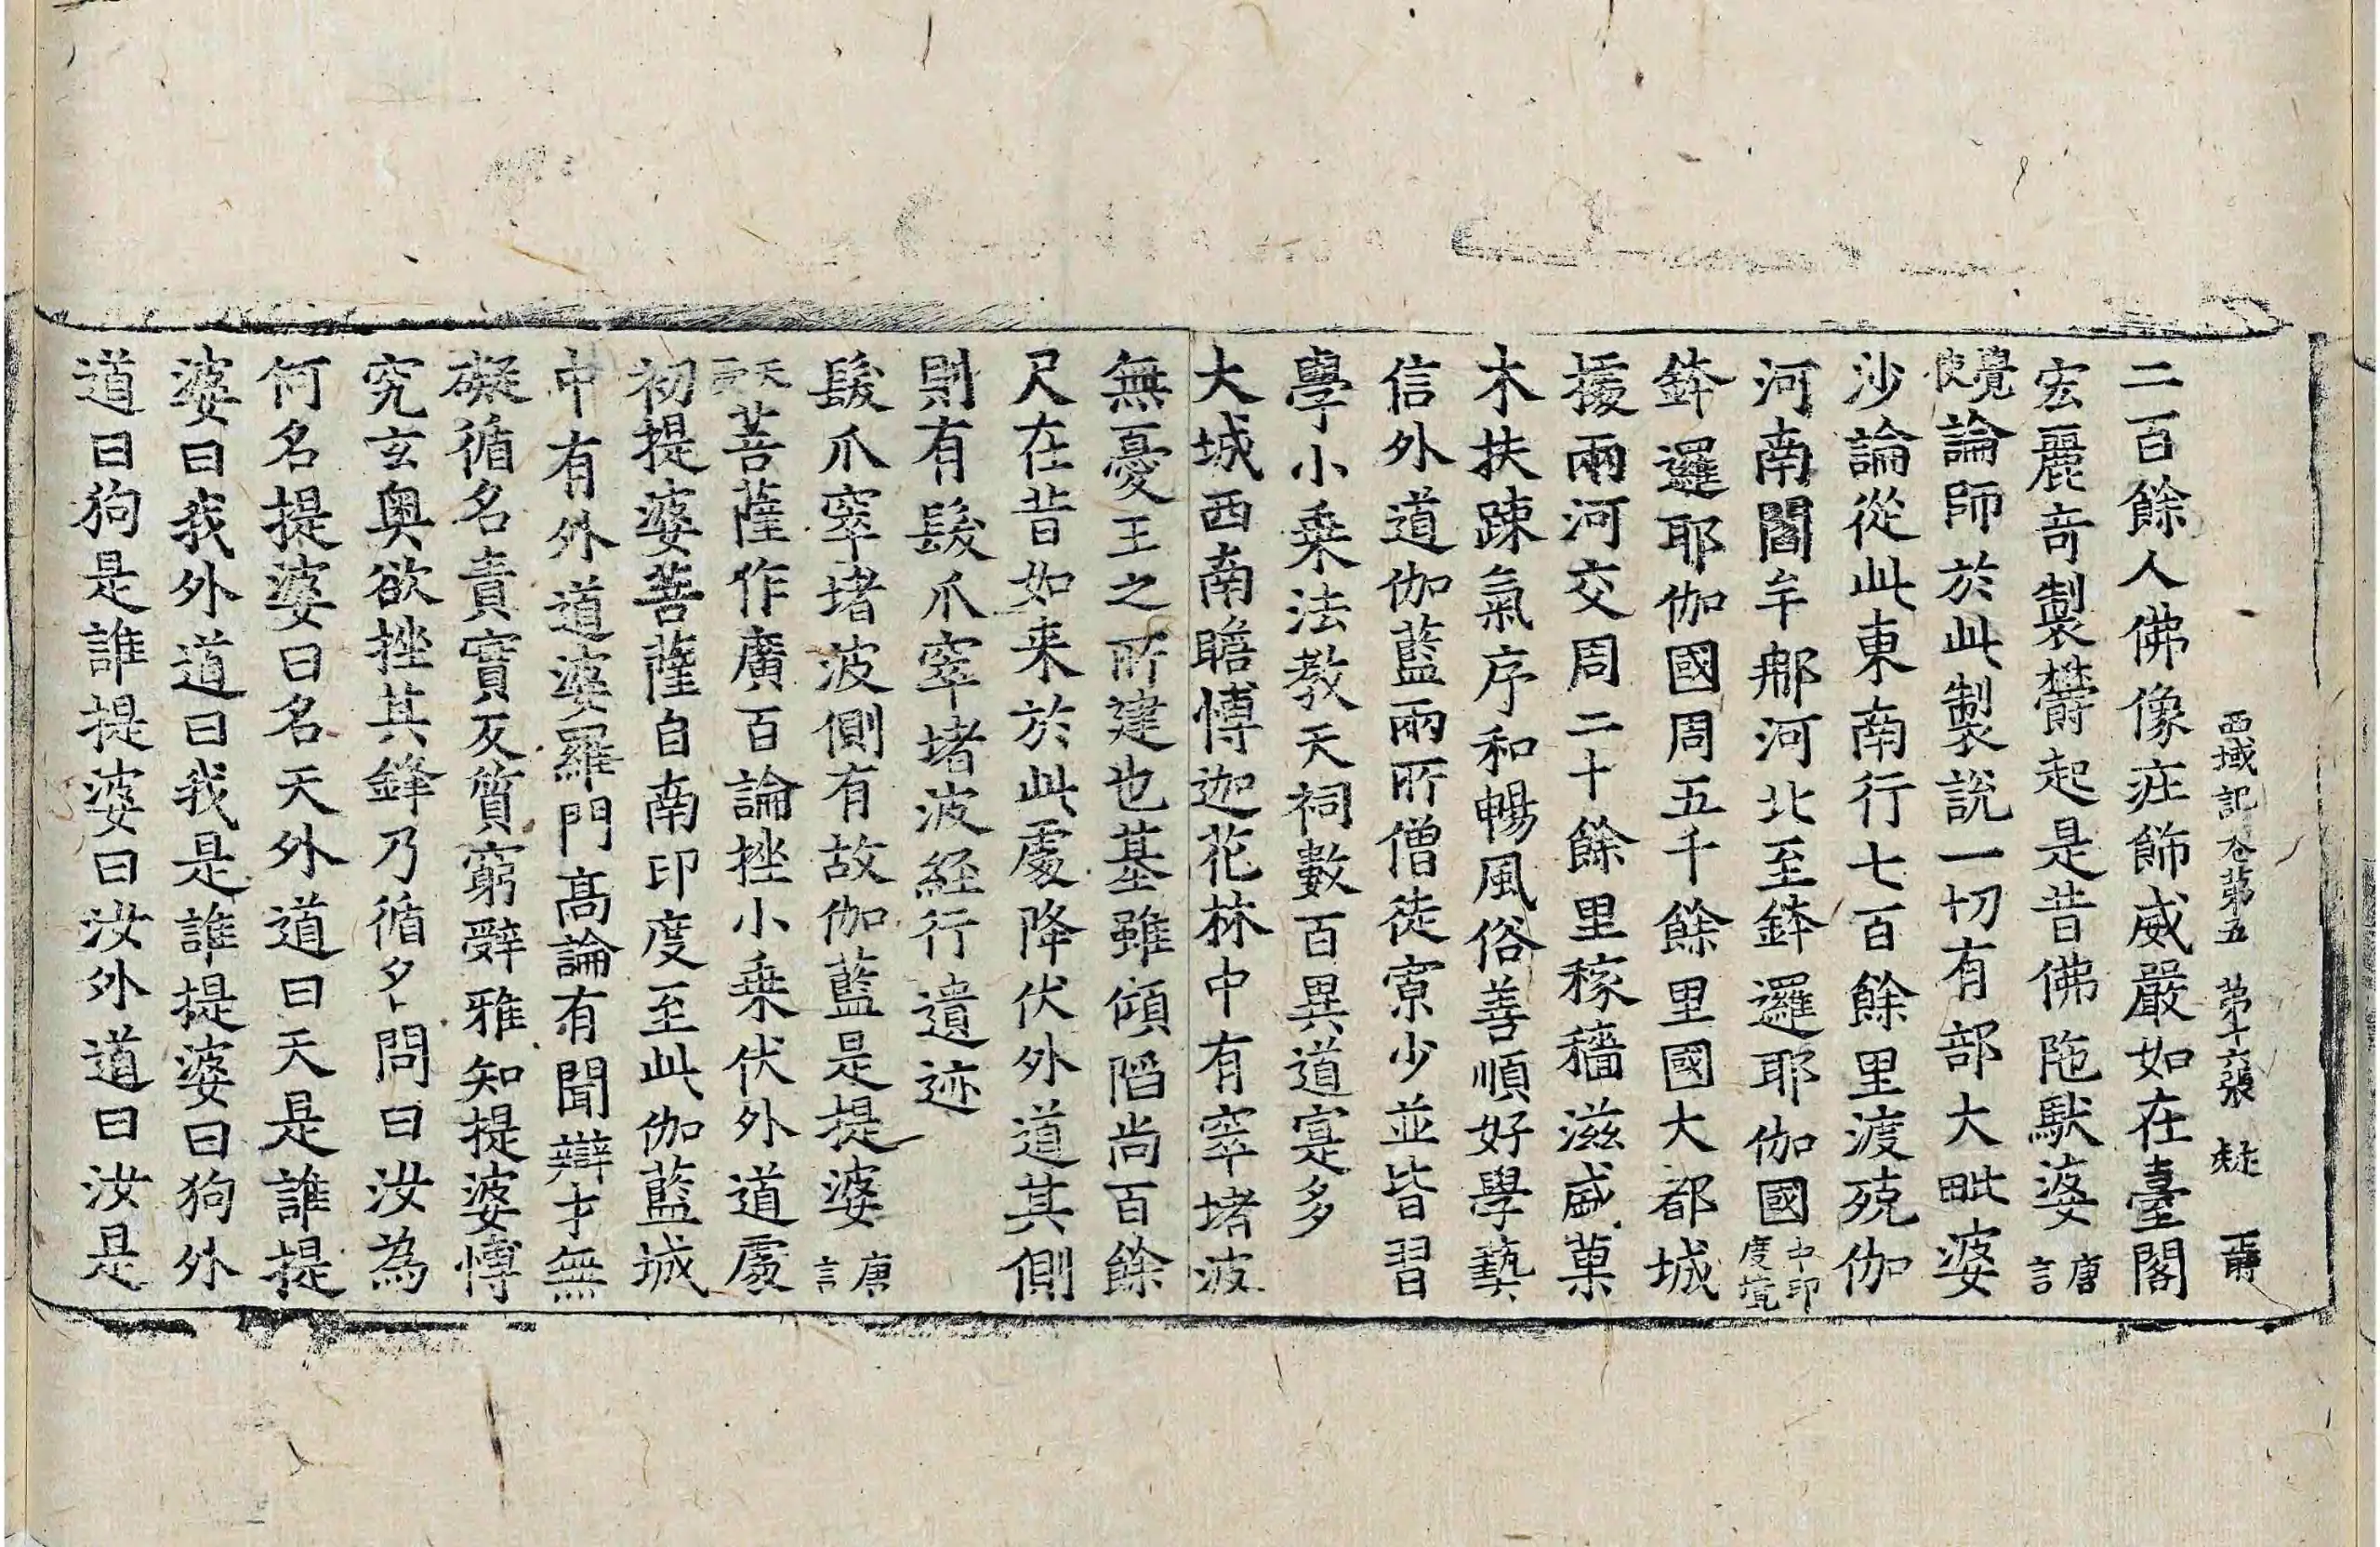 西域記卷第五　第十六張　𡊮
二百餘人佛像莊飾威嚴如在臺閣
宏麗奇製欝起是昔佛陁馱婆唐言
覺使論師於此製說一切有部大毗婆
沙論從此東南行七百餘里渡殑伽
河南閻牟那河北至鉢邏耶伽國中印度境
鉢邏耶伽國周五千餘里國大都城
據兩河交周二十餘里稼穡滋盛菓
木扶踈氣序和暢風俗善順好學藝
信外道伽藍兩所僧徒寡少並皆習
學小乗法教天祠數百異道寔多
大城西南瞻博迦花林中有窣堵波
無憂王之所建也基雖傾陷尚百餘
尺在昔如来於此處降伏外道其側
則有髮爪窣堵波經行遺迹
髮爪窣堵波側有故伽藍是提婆唐言
天言菩薩作廣百論挫小乗伏外道處
初提婆菩薩自南印度至此伽藍城
中有外道婆羅門高論有聞辯才無
礙循名責實反質窮辭雅知提婆博
究玄奧欲挫其鋒乃循名問曰汝為
何名提婆曰名天外道曰天是誰提
婆曰我外道曰我是誰提婆曰狗外
道曰狗是誰提婆曰汝外道曰汝是